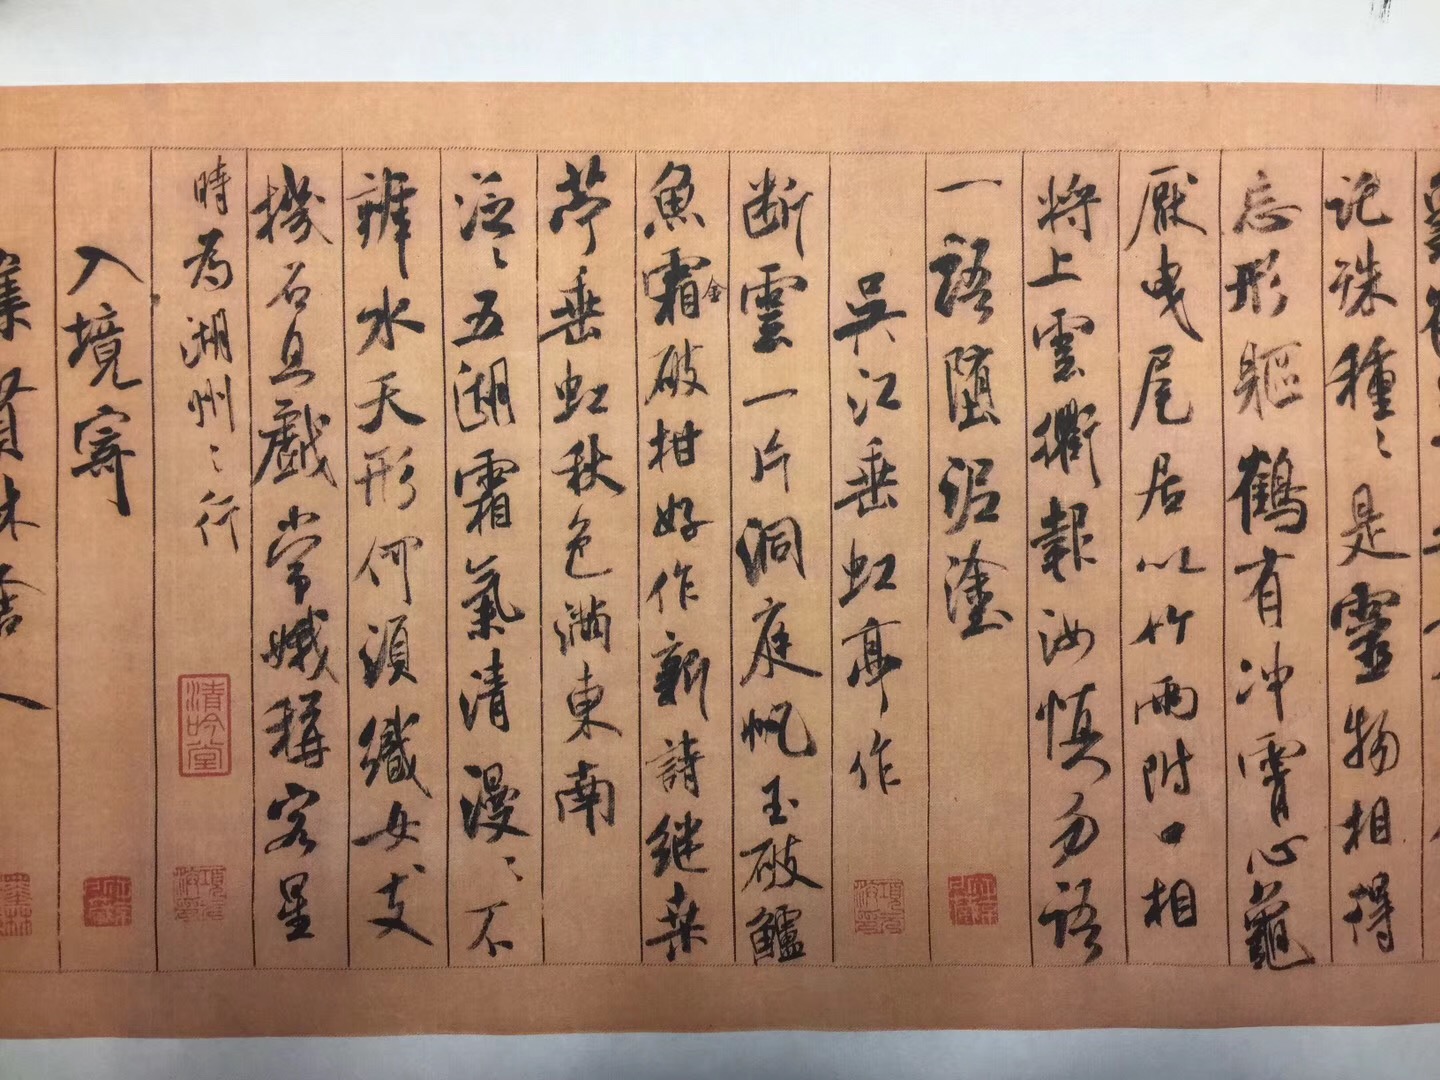 託殊種〻是靈物相得
忘形軀鶴有冲霄心龜
厭曳尾居以竹兩附口相
將上雲衢報汝慎勿語
一語墮泥塗
吳江垂虹亭作
断雲一片洞庭帆玉破鱸
魚霜破柑好作新詩継桒
金
苧垂虹秋色滿東南
泛〻五湖霜氣清漫〻不
辨水天形何須織女支
機石且戲常娥稱客星
時為湖州之行
清吟堂
入境寄
集賢林舍人